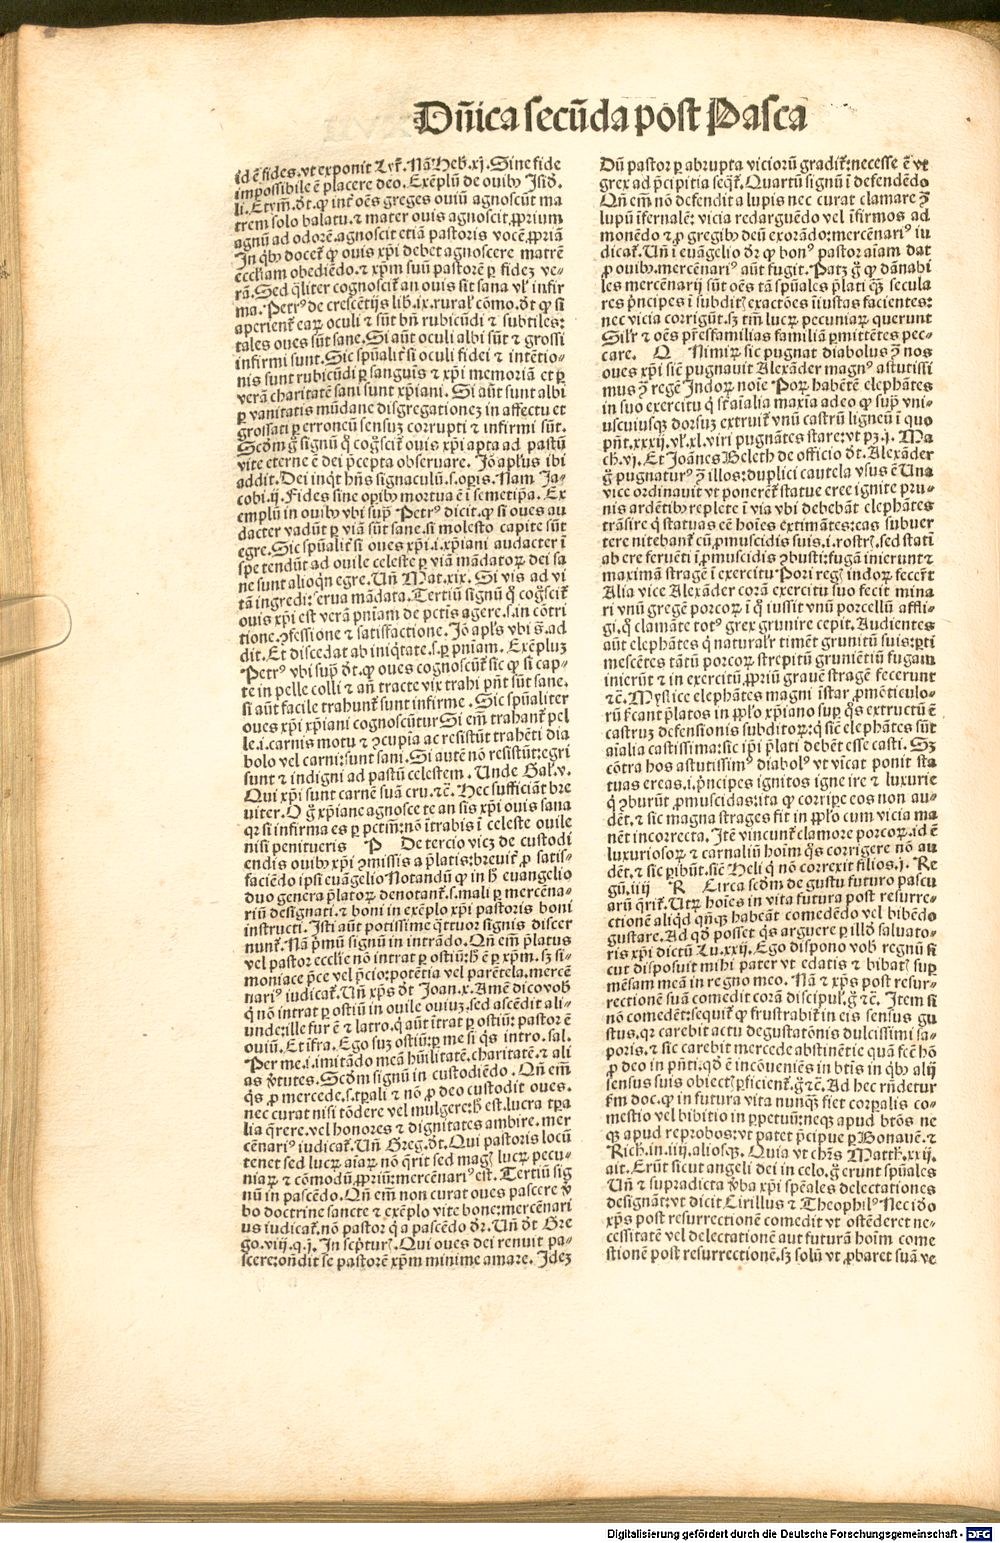 Dñica secũda post Pasca
id ẽ fides. vt exponit Lyr̃. Nã Heb. xj. Sine fide
impossibile ẽ placere deo. Exẽplũ de ouibꝰ Isid.
li. Etym. d̃t. ꝙ int̃ oẽs greges ouiũ agnoscũt ma
trem solo balatu. ⁊ mater ouis agnoscit ꝓprium
agnũ ad odorẽ. agnoscit etiã pastoris vocẽ ꝓpriã
In q̃bꝰ docet̃ ꝙ ouis xp̃i debet agnoscere matrẽ
eccl̃iam obediẽdo. ⁊ xp̃m suũ pastorẽ ꝑ fidez ve⸗
rã. Sed q̃liter cognoscit̃ an ouis sit sana vl̕ infir
ma. Petrꝰ de crescẽtijs lib. ix. rural̕ cõmo. d̃t ꝙ si
aperient̃ eaꝝ oculi ⁊ sũt bñ rubicũdi ⁊ subtiles:
tales oues sũt sane. Si aũt oculi albi sũt ⁊ grossi
infirmi sunt. Sic spũalit̃ si oculi fidei ⁊ intẽtio⸗
nis sunt rubicũdi ꝑ sanguis ⁊ xp̃i memoriã et ꝑ
verã charitatẽ sani sunt xp̃iani. Si aũt sunt albi
ꝑ vanitatis mũdane disgregationez in affectu et
grossati ꝑ erroneũ sensuz corrupti ⁊ infirmi sũt.
Scd̃m g̃ signũ q̃ cog̃scit̃ ouis xp̃i apta ad pastũ
vite eterne ẽ dei p̃cepta obseruare. Jo. apl̃us ibi
addit. Dei inq̃t hñs signaculũ. s. oꝑis. Nam Ja⸗
cobi. ij. Fides sine oꝑibꝰ mortua ẽ ĩ semetip̃a. Ex
emplũ in ouibꝰ vbi sup̃ Petrꝰ dicit. ꝙ si oues au
dacter vadũt ꝑ viã sũt sane. si molesto capite sũt
egre. Sic spũalit̃ si oues xp̃i. i. xp̃iani audacter ĩ
spe tendũt ad ouile celeste ꝑ viã mãdatoꝝ dei sa
ne sunt alioq̃n egre. Uñ Mat. xix. Si vis ad vi
tã ingredi: serua mãdata. Tertiũ signũ q̃ cog̃scit̃
ouis xp̃i est verã pñiam de pctis agere. s. in cõtri
tione. ꝯfessione ⁊ satisfactione. Jo. apl̃s vbi s̃. ad
dit. Et discedat ab iniq̃tate. s. ꝑ pñiam. Exẽpluz
Petrꝰ vbi sup̃ d̃t. ꝙ oues cognoscũt̃ sic ꝙ si cap⸗
te in pelle colli ⁊ añ tracte vix trahi pñt sũt sane.
si aũt facile trahunt̃ sunt infirme. Sic spũaliter
oues xp̃i xp̃iani cognoscũtur Si em̃ trahant̃ pel
le. i. carnis motu ⁊ ꝯcupĩa ac resistũt trahẽti dia
bolo vel carni: sunt sani. Si autẽ nõ resistũt: egri
sunt ⁊ indigni ad pastũ celestem. Unde Gal̕. v.
Qui xp̃i sunt carnẽ suã cru. ⁊c̃. Hec sufficiãt bre
uiter. O g̃ xp̃iane agnosce te an sis xp̃i ouis sana
qr si infirma es ꝑ pctm̃: nõ ĩtrabis ĩ celeste ouile
nisi penitueris P De tercio vicz de custodi
endis ouibꝰ xp̃i ꝯmissis a p̃latis: breuit̃ ꝓ satis⸗
faciẽdo ipsi euãgelio Notandũ ꝙ in h̃ euangelio
duo genera p̃latoꝝ denotant̃. s. mali ꝑ mercẽna⸗
riũ designati. ⁊ boni in exẽplo xp̃i pastoris boni
instructi. Isti aũt potissime q̃ttuor signis discer
nunt̃. Nã p̃mũ signũ in intrãdo. Qñ em̃ p̃latus
vel pastor eccl̃ie nõ intrat ꝑ ostiũ: h̃ ẽ ꝑ xp̃m. sz si⸗
moniace p̃ce vel p̃cio: potẽtia vel parẽtela. mercẽ
nariꝰ iudicat̃. Uñ xp̃s d̃t Joan. x. Amẽ dico vob̃
q̃ nõ intrat ꝑ ostiũ in ouile ouiuz. sed ascẽdit ali⸗
unde: ille fur ẽ ⁊ latro. q̃ aũt ĩtrat ꝑ ostiũ: pastor ẽ
ouiũ. Et ĩfra. Ego suz ostiũ: ꝑ me si q̃s intro. sal.
Per me. i. imitãdo meã hũilitatẽ. charitatẽ. ⁊ ali
as ṽtutes. Scd̃m signũ in custodiẽdo. Qñ em̃
q̃s ꝓ mercede. s. tꝑali ⁊ nõ ꝓ deo custodit oues.
nec curat nisi tõdere vel mulgere: h̃ est. lucra tꝑa
lia q̃rere. vel honores ⁊ dignitates ambire. mer
cẽnariꝰ iudicat̃. Uñ Greg. d̃t. Qui pastoris locũ
tenet sed lucꝝ aĩaꝝ nõ q̃rit sed mag̃ lucꝝ pecu⸗
niaꝝ ⁊ cõmodũ ꝓpriũ: mercẽnariꝰ est. Tertiũ sig
nũ in pascẽdo. Qñ em̃ non curat oues pascere ṽ
bo doctrine sancte ⁊ exẽplo vite bone: mercẽnari
us iudicat̃. nõ pastor q̃ a pascẽdo d̃r. Uñ d̃t Gre
go. viij. q. j. In scp̃tur̃. Qui oues dei renuit pa⸗
scere: oñdit se pastorẽ xp̃m minime amare. Idez
Dũ pastor ꝑ abrupta vicioꝝ gradit̃: necesse ẽ vt
grex ad p̃cipitia seq̃t̃. Quartũ signũ ĩ defendẽdo
Qñ em̃ nõ defendit a lupis nec curat clamare ꝯ̃
lupũ ĩfernalẽ: vicia redarguẽdo vel ĩfirmos ad
monẽdo ⁊ ꝓ gregibꝰ deũ exorãdo: mercẽnariꝰ iu
dicat̃. Uñ ĩ euãgelio d̃r ꝙ bonꝰ pastor aĩam dat
ꝓ ouibꝰ. mercẽnariꝰ aũt fugit. Patz g̃ ꝙ dãnabi
les mercẽnarij sũt oẽs tã spũales p̃lati q̃ꝫ secula
res p̃ncipes ĩ subdit̃ exactões iniustas facientes:
nec vicia corrigũt. sz tm̃ lucꝝ pecuniaꝝ querunt
Silr̃ ⁊ oẽs pr̃esfamilias familiã ꝑmittẽtes pec⸗
care. Q Nimiꝝ sic pugnat diabolus ꝯ̃ nos
oues xp̃i sic̃ pugnauit Alexãder magnꝰ astutissi
mus ꝯ̃ regẽ Indoꝝ noĩe Poꝝ habẽtẽ elephãtes
in suo exercitu q̃ st̃ aĩalia maxĩa adeo ꝙ sup̃ vni⸗
uscuiusqꝫ dorsuz extruit̃ vnũ castrũ ligneũ ĩ quo
pñt. xxxij. vl̕. xl. viri pugnãtes stare: vt pꝫ. j. Ma
ch. vj. Et Joãnes Beleth de officio d̃t. Alexãder
g̃ pugnaturꝰ ꝯ̃ illos: duplici cautela vsus ẽ Una
vice ordinauit vt ponerẽt̃ statue eree ignite pru⸗
nis ardẽtibꝰ replete ĩ via vbi debebãt elephãtes
trãsire q̃ statuas eẽ hoĩes extimãtes: eas subuer
tere nitebant̃ cũ ꝓmuscidis suis. i. rostr̃. sed statĩ
ab ere feruẽti ĩ ꝓmuscidis ꝯbusti: fugã inierunt ⁊
maximã stragẽ ĩ exercitu Pori reg̃ indoꝝ fecer̃t
Alia vice Alexãder corã exercitu suo fecit mina
ri vnũ gregẽ porcoꝝ ĩ q̃ iussit vnũ porcellũ affli⸗
gi. q̃ clamãte totꝰ grex grunire cepit. Audientes
aũt elephãtes q̃ naturalr̃ timẽt grunitũ suis: ꝑti
mescẽtes tãtũ porcoꝝ strepitũ gruniẽtiũ fugam
inierũt ⁊ in exercitũ ꝓpriũ grauẽ stragẽ fecerunt
⁊c̃. Mystice elephãtes magni ĩstar ꝓmõticulo⸗
rũ fc̃ant p̃latos in pp̃lo xp̃iano sup̃ q̃s extructũ ẽ
castruz defensionis subditoꝝ: q̃ sic̃ elephãtes sũt
aĩalia castissima: sic ip̃i p̃lati debẽt esse casti. Sz
cõtra hos astutissimꝰ diabolꝰ vt vĩcat ponit sta
tuas ereas. i. p̃ncipes ignitos igne ire ⁊ luxurie
q̃ ꝯburũt ꝓmuscidas: ita ꝙ corriꝑe eos non au⸗
dẽt. ⁊ sic magna strages fit in pp̃lo cum vicia ma
nẽt incorrecta. Itẽ vincunt̃ clamore porcoꝝ. id ẽ
luxuriosoꝝ ⁊ carnaliũ hoĩm q̃s corrigere nõ au
dẽt. ⁊ sic ꝑibũt. sic̃ Heli q̃ nõ correxit filios. j. Re
gũ. iiij R Circa scd̃m de gustu futuro pascu
arũ q̃rit̃. Utꝝ hoĩes in vita futura post resurre⸗
ctionẽ aliq̃d qñqꝫ habeãt comedẽdo vel bibẽdo
gustare. Ad qd̃ posset q̃s arguere ꝑ illd̃ saluato⸗
ris xp̃i dictũ Lu. xxij. Ego dispono vob̃ regnũ si
cut disposuit mihi pater vt edatis ⁊ bibat̃ sup̃
mẽsam meã in regno meo. Nã ⁊ xp̃s post resur⸗
rectionẽ suã comedit corã discipul̕. g̃ ⁊c̃. Item si
nõ comedẽt: sequit̃ ꝙ frustrabit̃ in eis sensus gu
stus. qr carebit actu degustatõnis dulcissimi sa⸗
poris. ⁊ sic carebit mercede abstinẽtie quã fec̃ hõ
ꝓ deo in pñti. qd̃ ẽ incõueniẽs in btĩs in q̃bꝰ alij
sensus suis obiect̃ ꝑficient̃. g̃ ⁊c̃. Ad hec rñdetur
fm̃ doc. ꝙ in futura vita nunqꝫ fiet corꝑalis co⸗
mestio vel bibitio in ꝑpetuũ: neqꝫ apud btõs ne
qꝫ apud reprobos: vt patet p̃cipue ꝑ Bonauẽ. ⁊
Rich. in. iiij. aliosqꝫ. Quia vt ch̃us Matth. xxij.
ait. Erũt sicut angeli dei in celo. g̃ erunt spũales
Uñ ⁊ supradicta ṽba xp̃i spẽales delectationes
designãt: vt dicit Cirillus ⁊ Theophilꝰ Nec id̕o
xp̃s post resurrectionẽ comedit vt ostẽderet ne⸗
cessitatẽ vel delectationẽ aut futurã hoĩm come
stionẽ post resurrectionẽ. sz solũ vt ꝓbaret suã ve
Digitalisierung gefördert durch die Deutsche Forschungsgemeinschaft - DFG